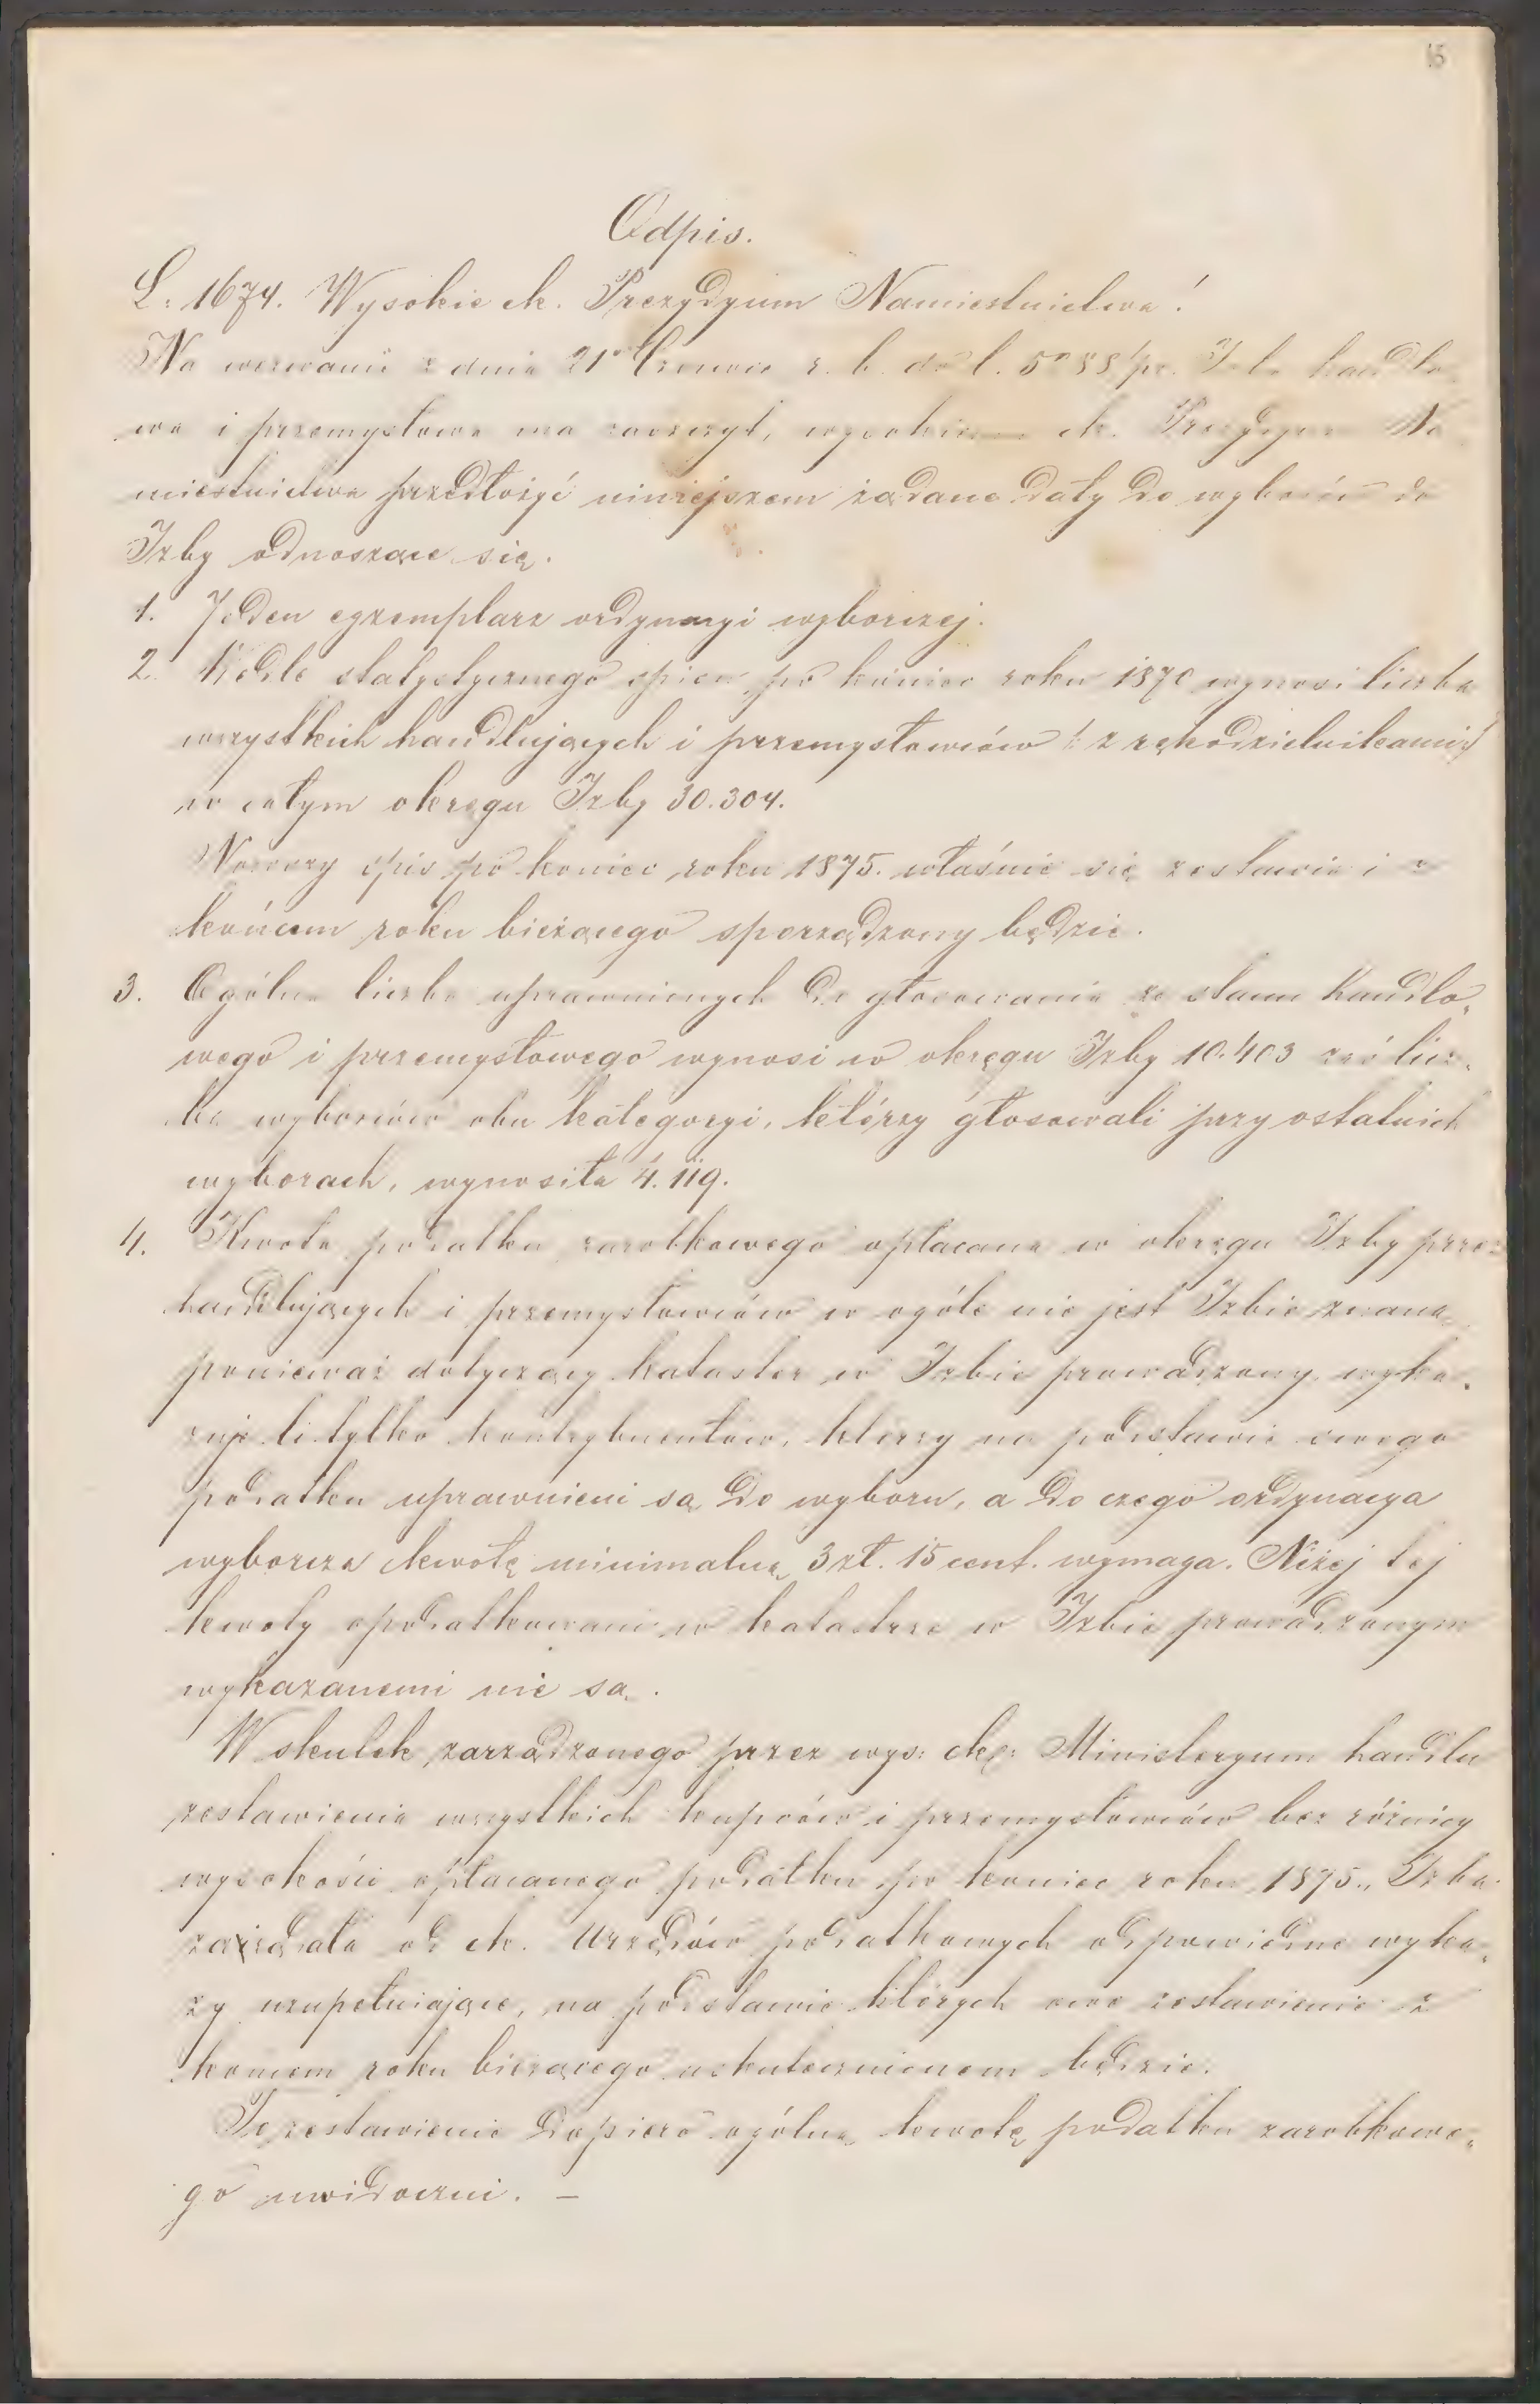 15
Odpis.
L: 1674. Wysokie ck. Prezydyum Namiestnictwa!
Na wezwanie z dnia 21o Czerwca r. b. do l. pr. Izba handlo„
wa i przemysłowa ma zaszczyt, wysokiemu ck. Prezydyum Na„
miestnictwa przedłożyć niniejszem żądane daty do wyborów do
Izby odnoszące się.
1. Jeden egzemplarz ordynacyi wyborczej.
2. Wedle statystycznego spisu po koniec roku 1870 wynosi liczba
wszystkich handlujących i przemysłowców /: z rękodzielnikami :/
w całym okręgu Izby 30.304.
Nowszy spis po koniec roku 1875. właśnie się zestawia i z
końcem roku bieżącego sporządzony będzie.
3. Ogólna liczba uprawnionych do głosowania ze stanu handlo„
wego i przemysłowego wynosi w okręgu Izby 10.403 zaś licz„
ba wyborców obu kategoryi, którzy głosowali przy ostatnich
wyborach, wynosiła 4.119.
4. Kwota podatku zarobkowego opłacana w okręgu Izby przez
handlujących i przemysłowców w ogóle nie jest Izbie znaną
ponieważ dotyczący kataster w Izbie prowadzony wyka„
zuje li tylko kontrybuentów, którzy na podstawie owego
podatku uprawnieni są do wyboru, a do czego ordynacya
wyborcza kwotę minimalną 3 zł. 15 cent. wymaga. Niżej tej
kwoty opodatkowani w katastrze w Izbie prowadzonym
wykazanemi nie są.
W skutek zarządzonego przez wys: ck: Ministeryum handlu
zestawienia wszystkich kupców i przemysłowców bez różnicy
wysokości opłacanego podatku po koniec roku 1875., Izba
zażądała od ck. Urzędów podatkowych odpowiedne wyka„
zy uzupełniające, na podstawie których owe zestawienie z
koncem roku bieżącego uskutecznionem będzie.
To zestawienie dopiero ogólną kwotę podatku zarobkowe„
go uwidoczni. —